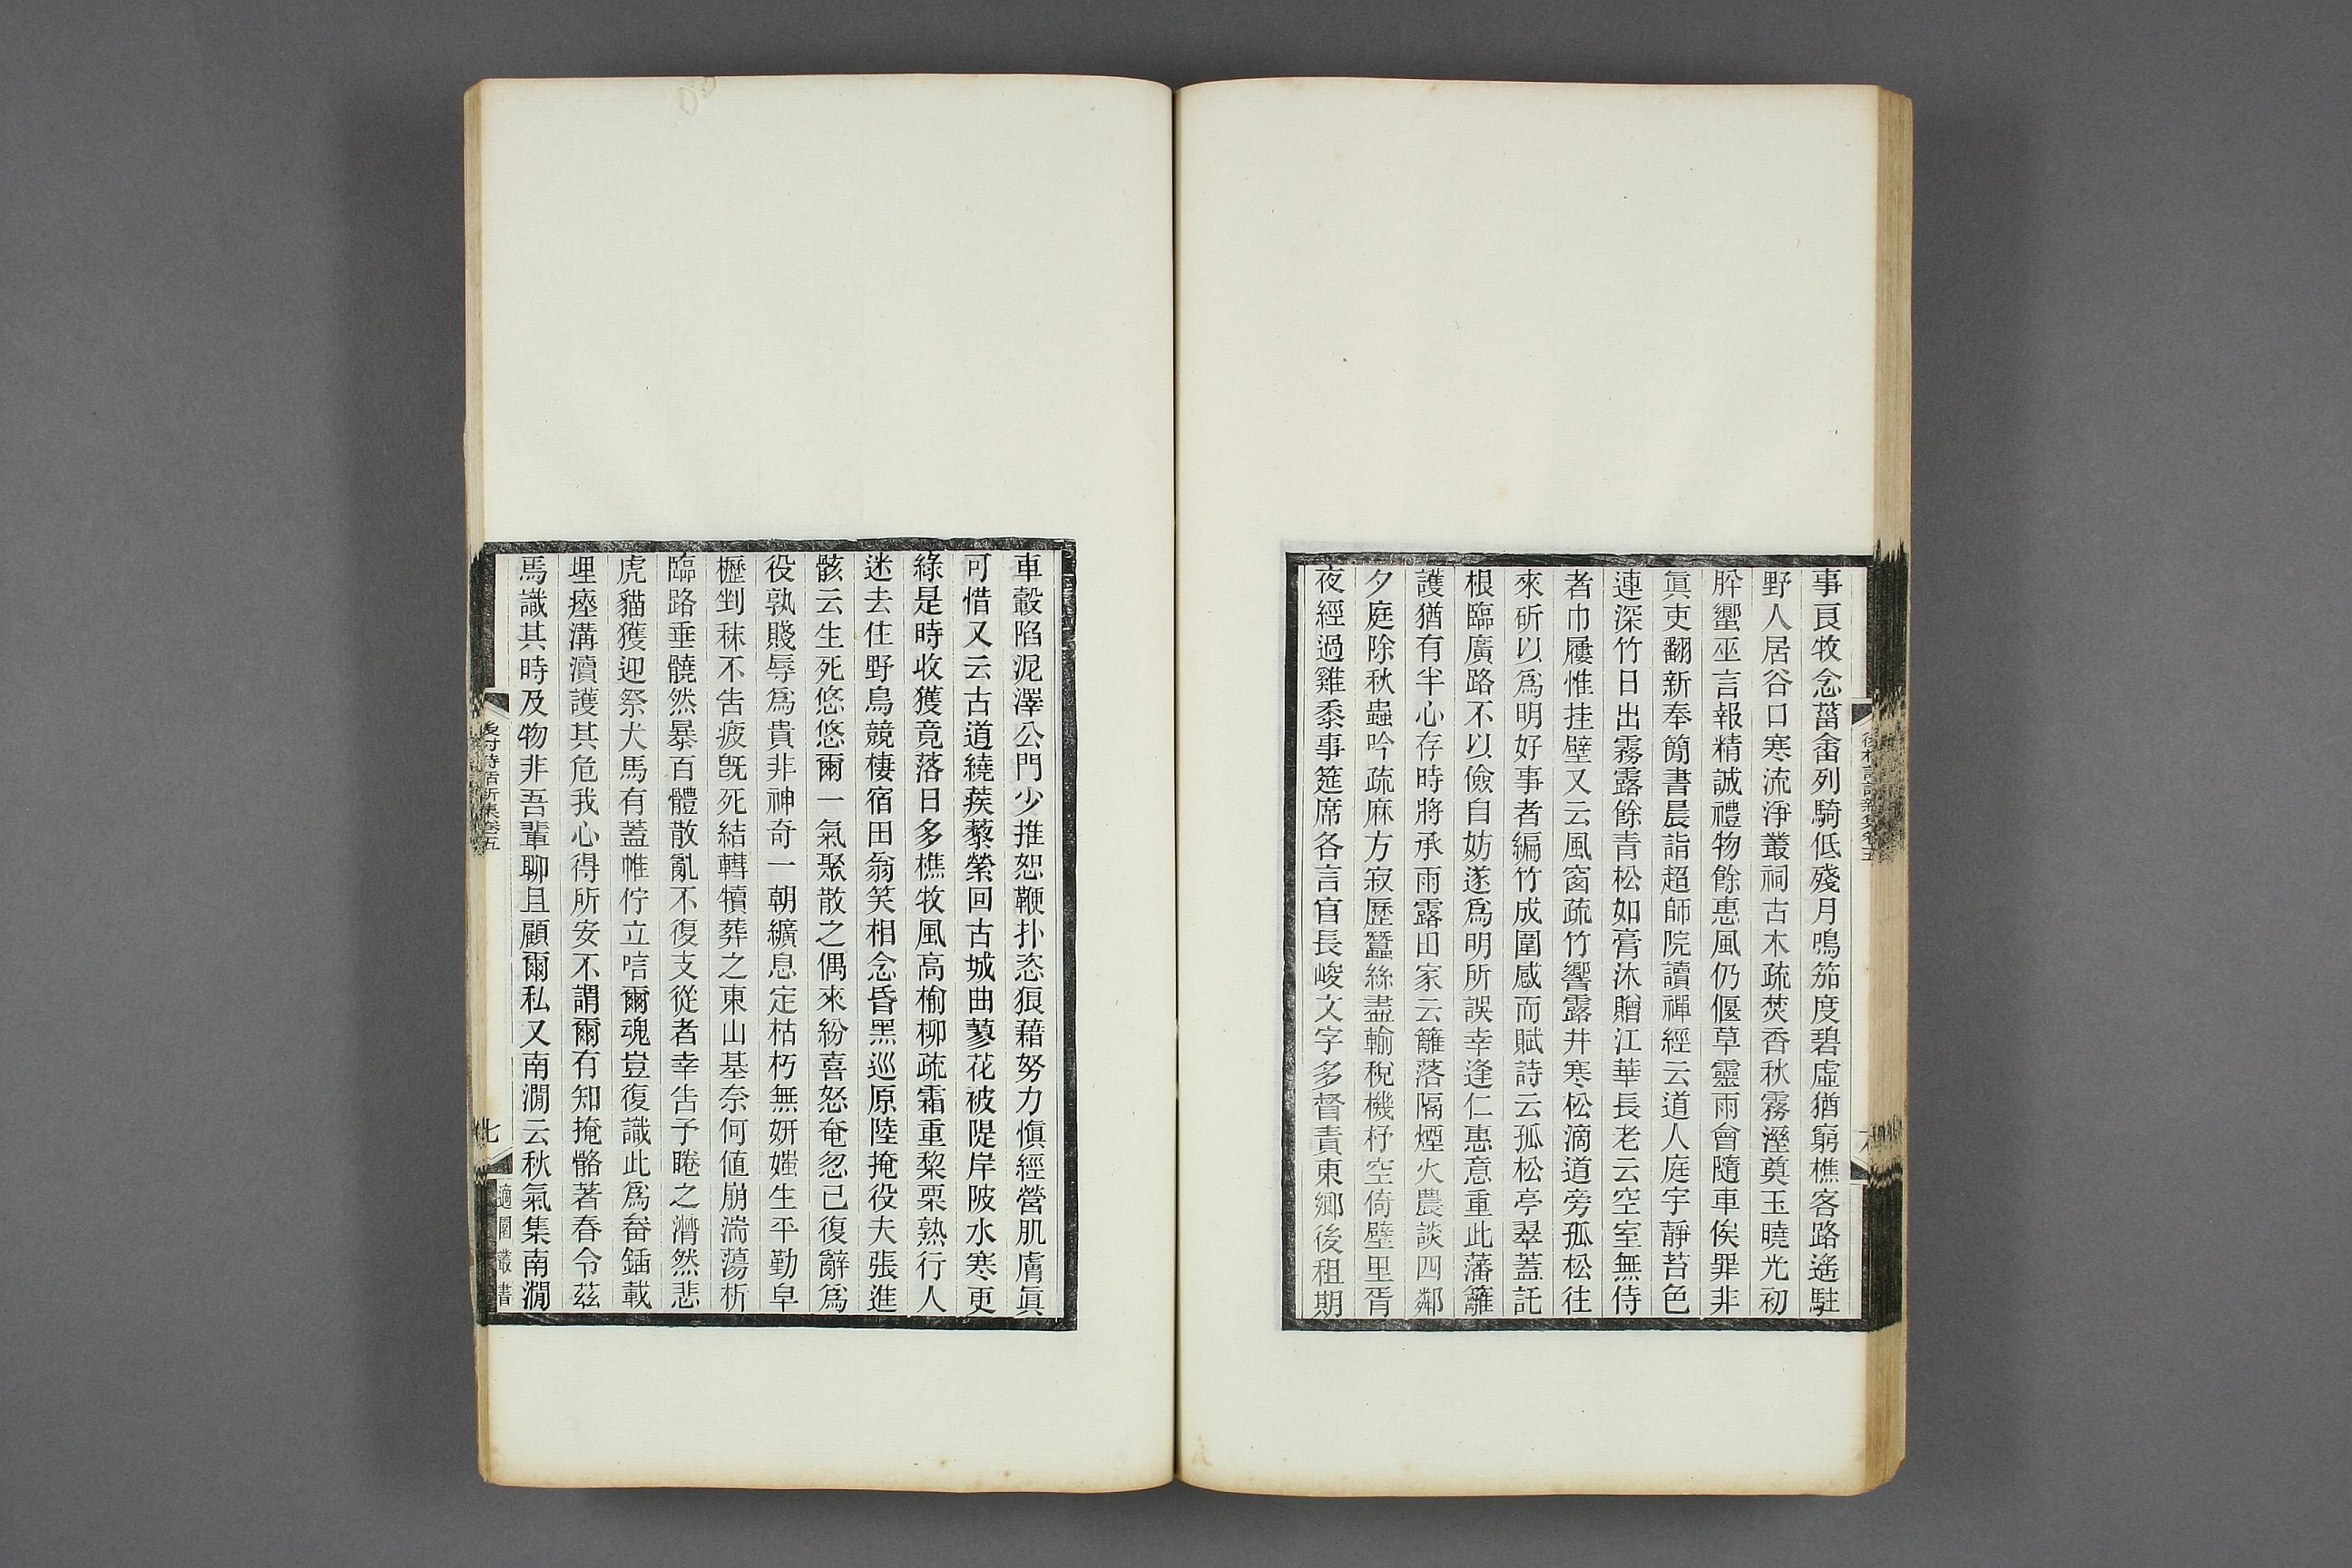 事良牧念菑畬列騎低殘月鳴笳度碧虛猶窮樵客路遙駐
野人居谷口寒流淨叢祠古木疏焚香秋霧溼奠玉曉光初
肸蠁巫言報精誠禮物餘惠風仍偃草靈雨會隨車俟罪非
眞吏翻新奉簡書晨詣超師院讀禪經云道人庭宇靜苔色
連深竹日出霧露餘青松如膏沐贈江華長老云空室無侍
者巾屨惟挂壁又云風窗疏竹響露井寒松滴道旁孤松往
來斫以爲明好事者編竹成圍感而賦詩云孤松亭翠蓋託
根臨廣路不以儉自妨遂爲明所誤幸逢仁惠意重此藩籬
護猶有半心存時將承雨露田家云籬落隔煙火農談四鄰
夕庭除秋蟲吟疏麻方寂歷蠶絲盡輸稅機杼空倚壁里胥
夜經過雞黍事筵席各言官長峻文字多督責東鄉後租期
車轂陷泥澤公門少推恕鞭扑恣狼藉努力愼經營肌膚眞
可惜又云古道繞蒺藜縈回古城曲蓼花被隄岸陂水寒更
綠是時收獲竟落日多樵牧風高榆柳疏霜重棃栗熟行人
迷去住野鳥競棲宿田翁笑相念昏黑巡原陸掩役夫張進
骸云生死悠悠爾一氣聚散之偶來紛喜怒奄忽已復辭爲
役孰賤辱爲貴非神奇一朝纊息定枯朽無妍媸生平勤皁
櫪剉秣不告疲旣死結轊櫝葬之東山基奈何値崩湍蕩析
臨路垂髐然暴百體散亂不復支從者幸告予睠之潸然悲
虎貓獲迎祭犬馬有蓋帷佇立唁爾魂豈復識此爲畚鍤載
埋瘞溝瀆護其危我心得所安不謂爾有知掩骼著春令茲
焉識其時及物非吾輩聊且顧爾私又南澗云秋氣集南澗
後村詩話新集卷五
七
適園叢書